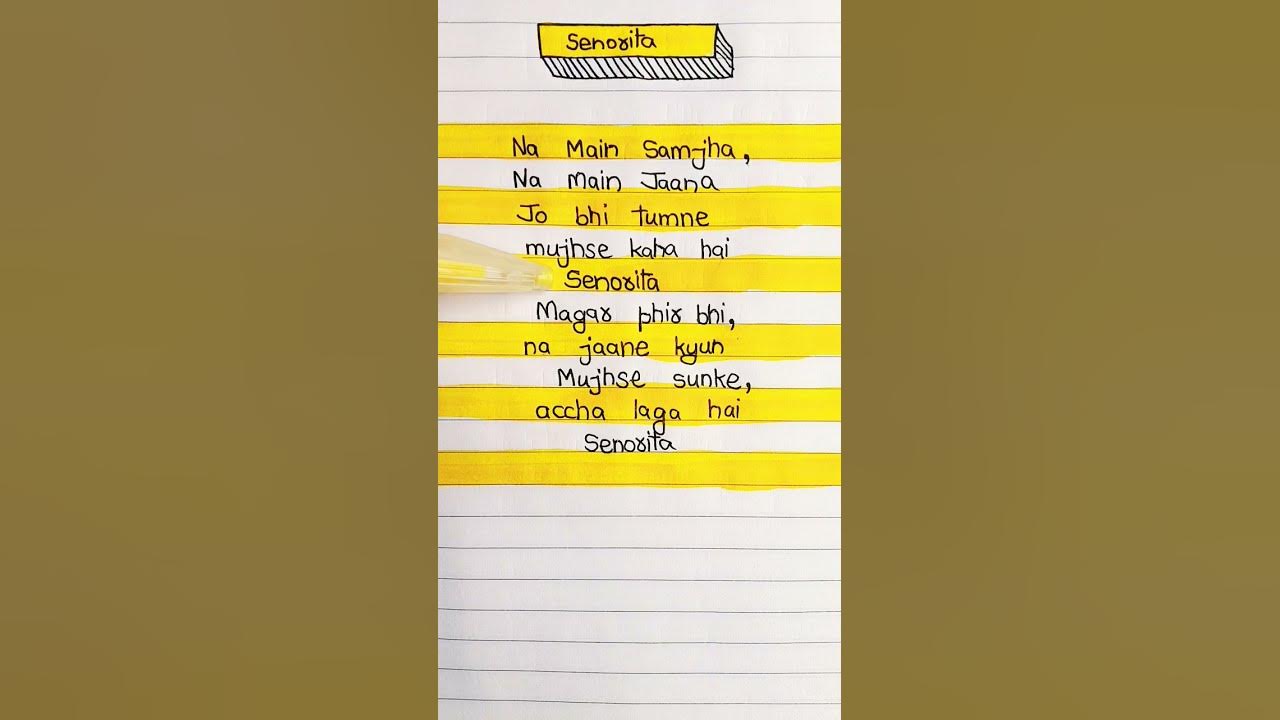 Senorita
Na Main Samjha,
Na Main Jaana
Jo bhi tumne
mujhse kaha hai
Senorita
Magar phir bhi,
na jaane kyun
Mujhse sunke,
accha laga hai
Senorita